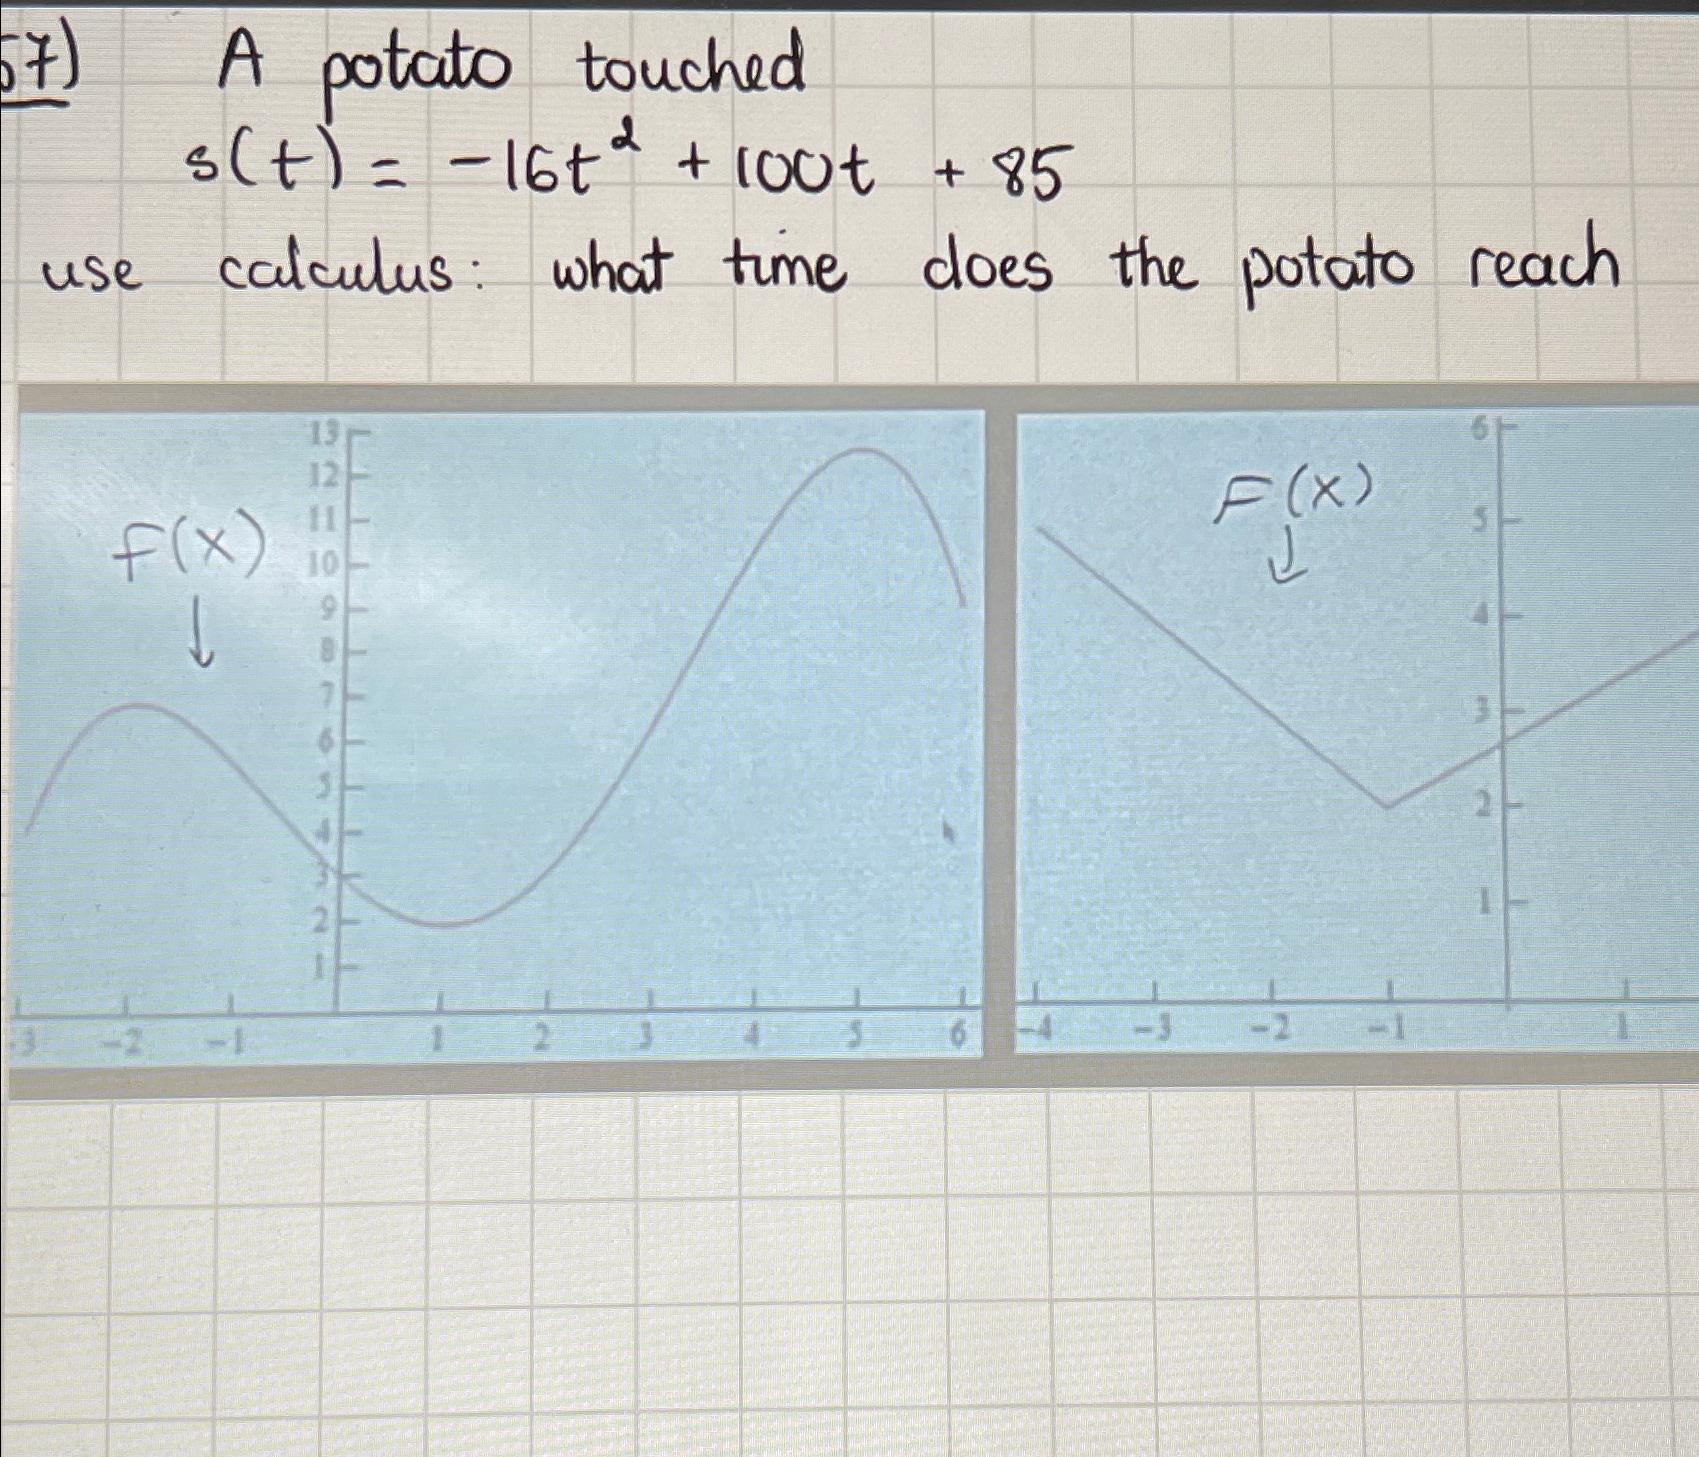 57) A potato touched
s(t) = -16t² + 100t + 85
use calculus: what time does the potato reach
13
12
11
10
9
8
7
6
5
4
3
2
1
f(x)
-3 -2 -1 1 2 3 4 5 6
6
5
4
3
2
1
F(x)
-4 -3 -2 -1 1